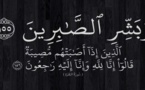 وَبَشِّرِ ٱلصَّٰبِرِينَ
ٱلَّذِينَ إِذَآ أَصَٰبَتْهُم مُّصِيبَةٌ
قَالُوٓا۟ إِنَّا لِلَّهِ وَإِنَّآ إِلَيْهِ رَٰجِعُونَ